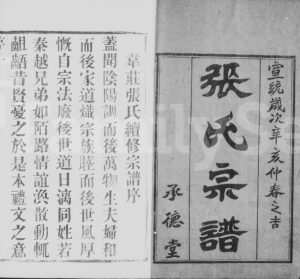 宣統歲次辛亥仲春之吉
張氏宗譜
承德堂
韋莊張氏續修宗譜序
蓋聞陰陽調而後萬物生夫婦和
而後家道熾宗族睦而後世風厚
慨自宗法廢後世道日漓同姓若
秦越兄弟如陌路情誼渙散動輒
齟齬昔賢憂之於是本禮文之意